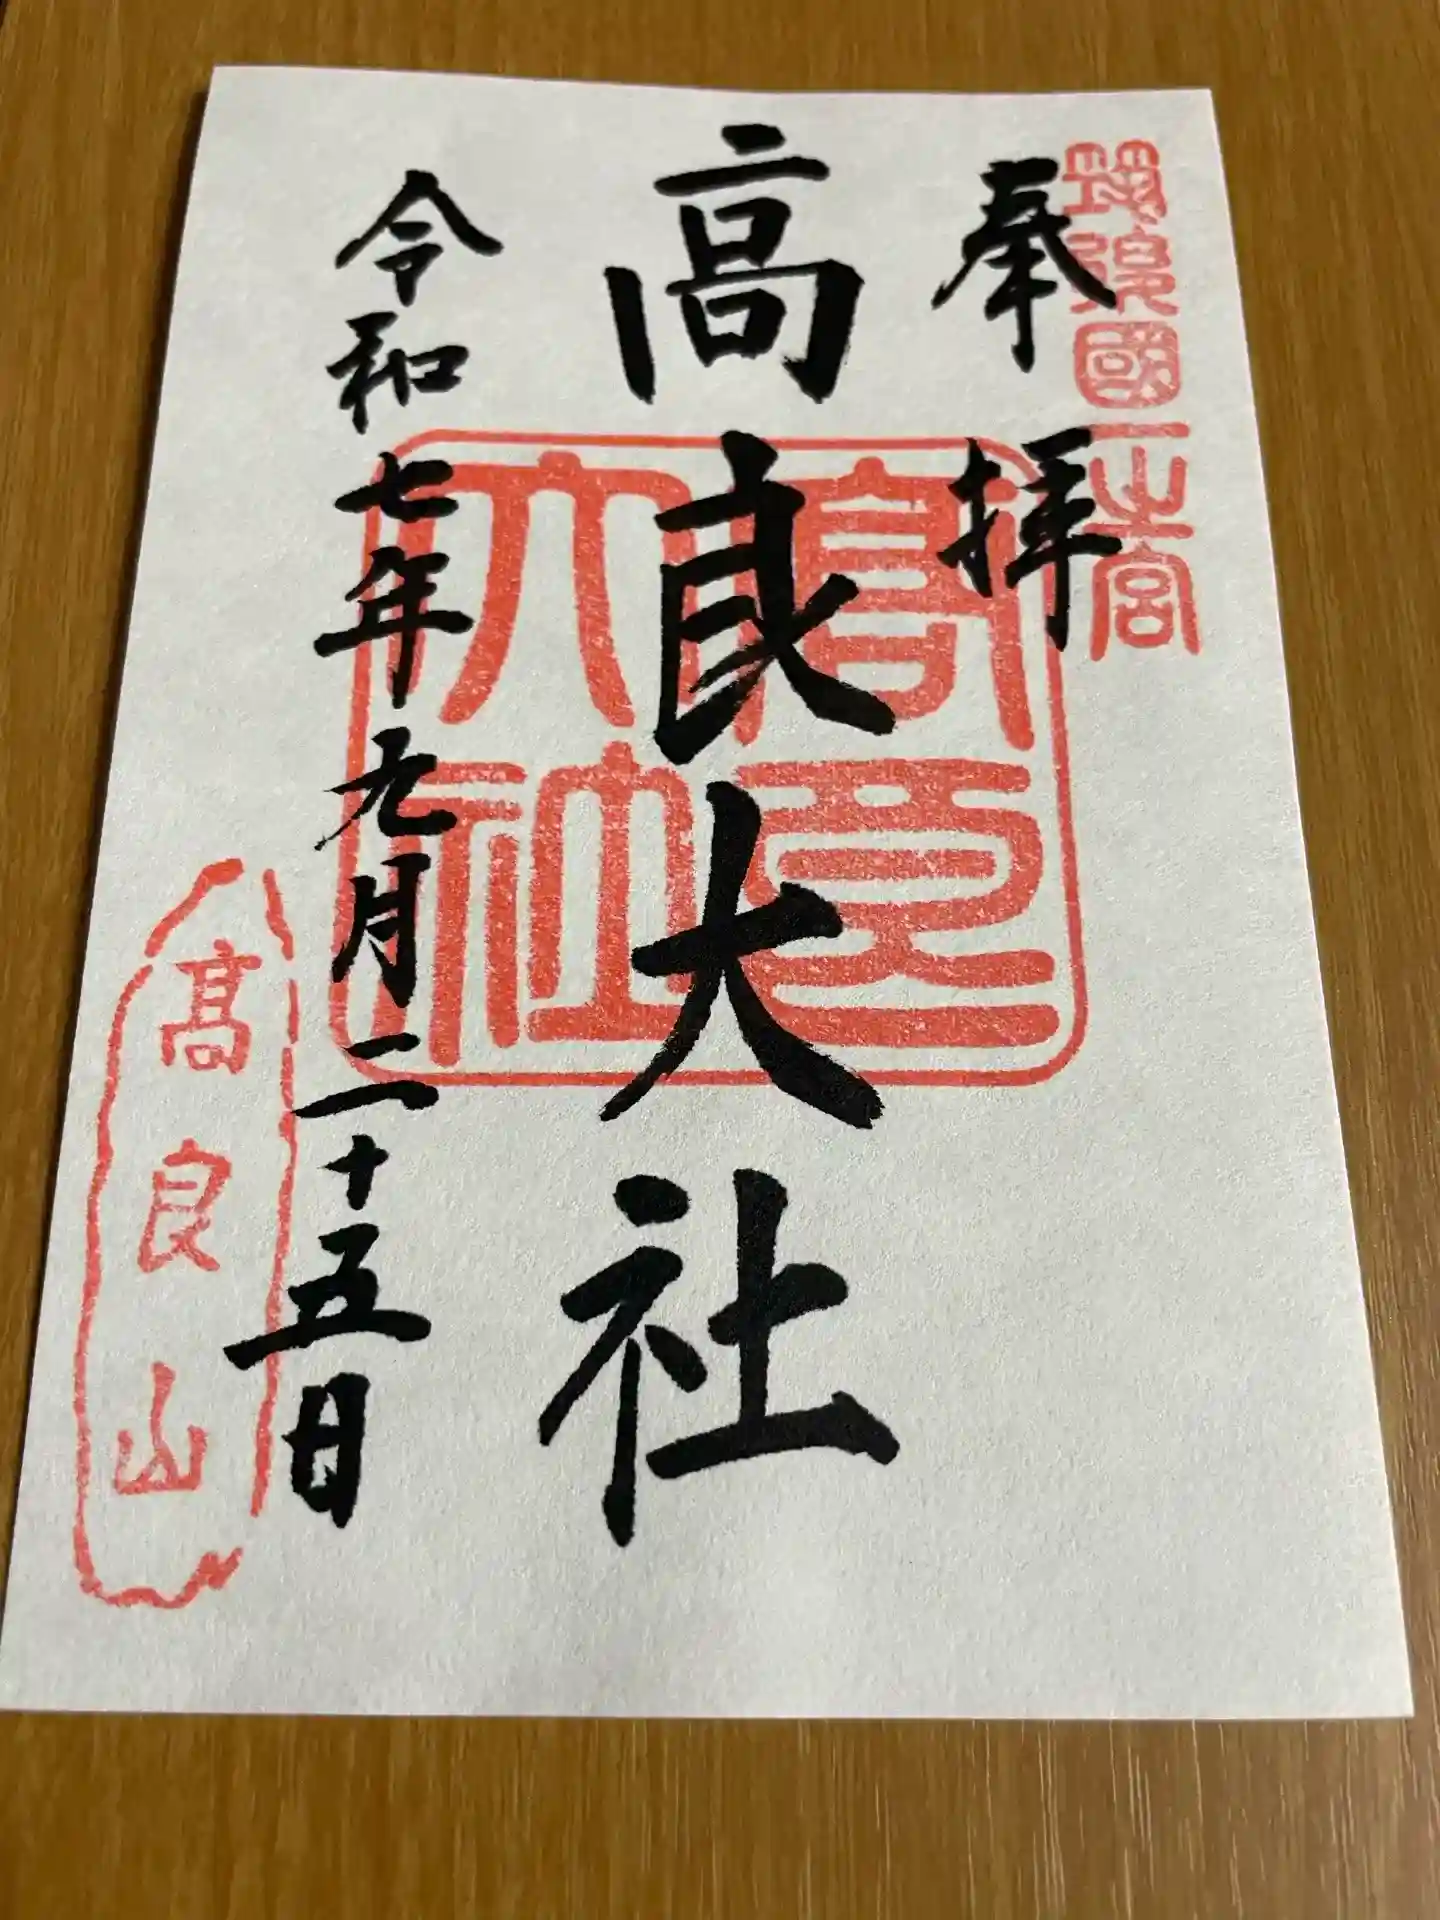 筑後國一之宮
奉拝
高良大社
高良大社
令和七年九月二十五日
高良山